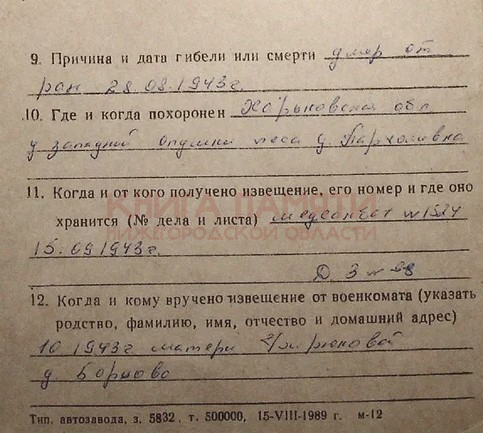 9. Причина и дата гибели или смерти умер от
ран 28.08.1943г.
10. Где и когда похоронен Харьковская обл
у западной опушки леса д. Пархомовка
11. Когда и от кого получено извещение, его номер и где оно
хранится (№ дела и листа) медсанбат №1524
КНИГА ПАМЯТИ
НИЖЕГОРОДСКОЙ ОБЛАСТИ
15.09.1943г.
Д. 3
12. Когда и кому вручено извещение от военкомата (указать
родство, фамилию, имя, отчество и домашний адрес)
10.1943г матери
д.
Тип. автозавода, з. 5832, т. 500000, 15-VIII-1989 г. м-12